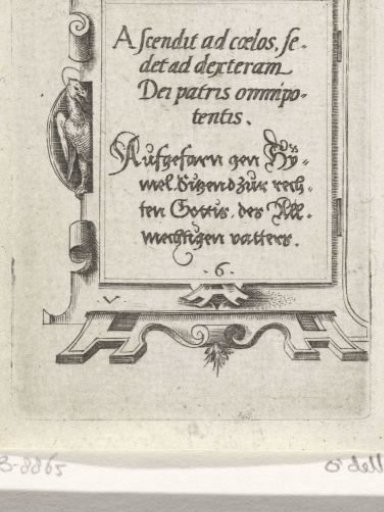 Ascendit ad cœlos, se-
det ad dexteram
Dei patris omnipo-
tentis.
Aufgefarn gen Hÿ-
mel. Sitzend zur rech-
ten Gottis, des All-
mechtigen vatters.
·6·
V